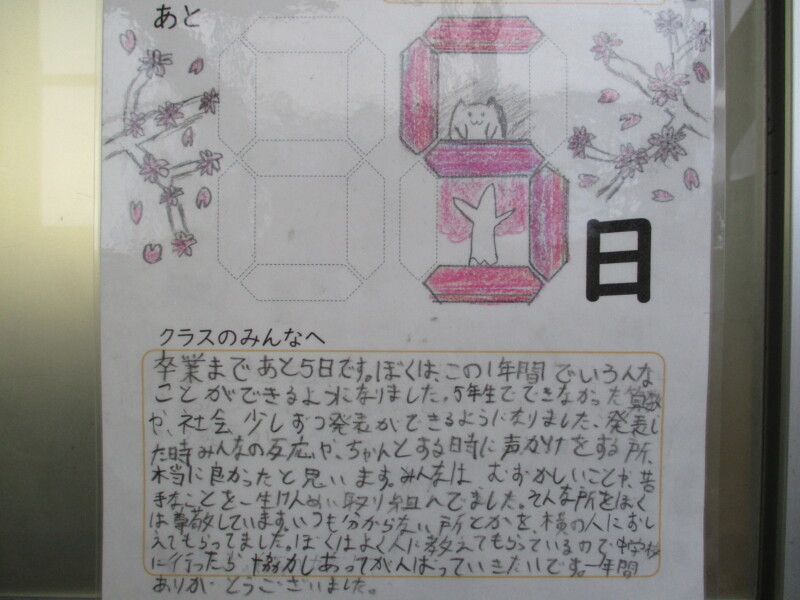 あと
5
日
クラスのみんなへ
卒業まであと5日です。ぼくは、この1年間でいろんな
ことができるようになりました。5年生でできなかった算数
や、社会、少しずつ発表ができるようになりました、発表し
た時みんなの反応や、ちゃんとする時に声かけをする所、
本当に良かったと思います。みんなは、むずかしいことや、苦
手なことを一生けんめい取り組んでました。そんな所をぼく
は尊敬しています。いつも分からない所とかを横の人におし
えてもらってました。ぼくはよく人に教えてもらっているので中学校
に行ったら協力しあってがんばっていきたいです。一年間
ありがとうございました。